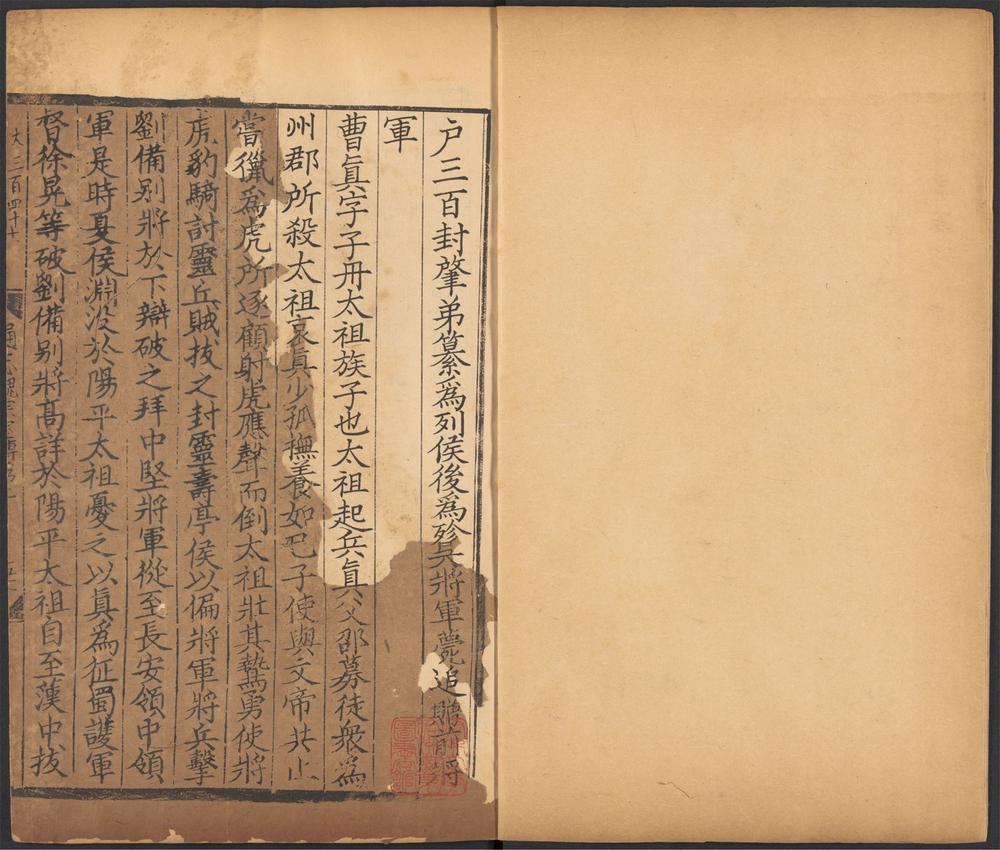 户三百封肇弟纂爲列侯後爲殄吴將軍薨追贈前將
軍
曹真字子丹太祖族子也太祖起兵真父邵募徒衆爲
州郡所殺太祖哀真少孤撫養如己子使與文帝共止
嘗獵爲虎所逐顧射虎應聲而倒太祖壯其鷙勇使將
虎豹騎討靈丘賊拔之封靈壽亭侯以偏將軍將兵擊
劉備别將於下辯破之拜中堅將軍從至長安領中領
軍是時夏侯淵没於陽平太祖憂之以真爲征蜀護軍
督徐晃等破劉備别將高詳於陽平太祖自至漢中拔
大三百四十